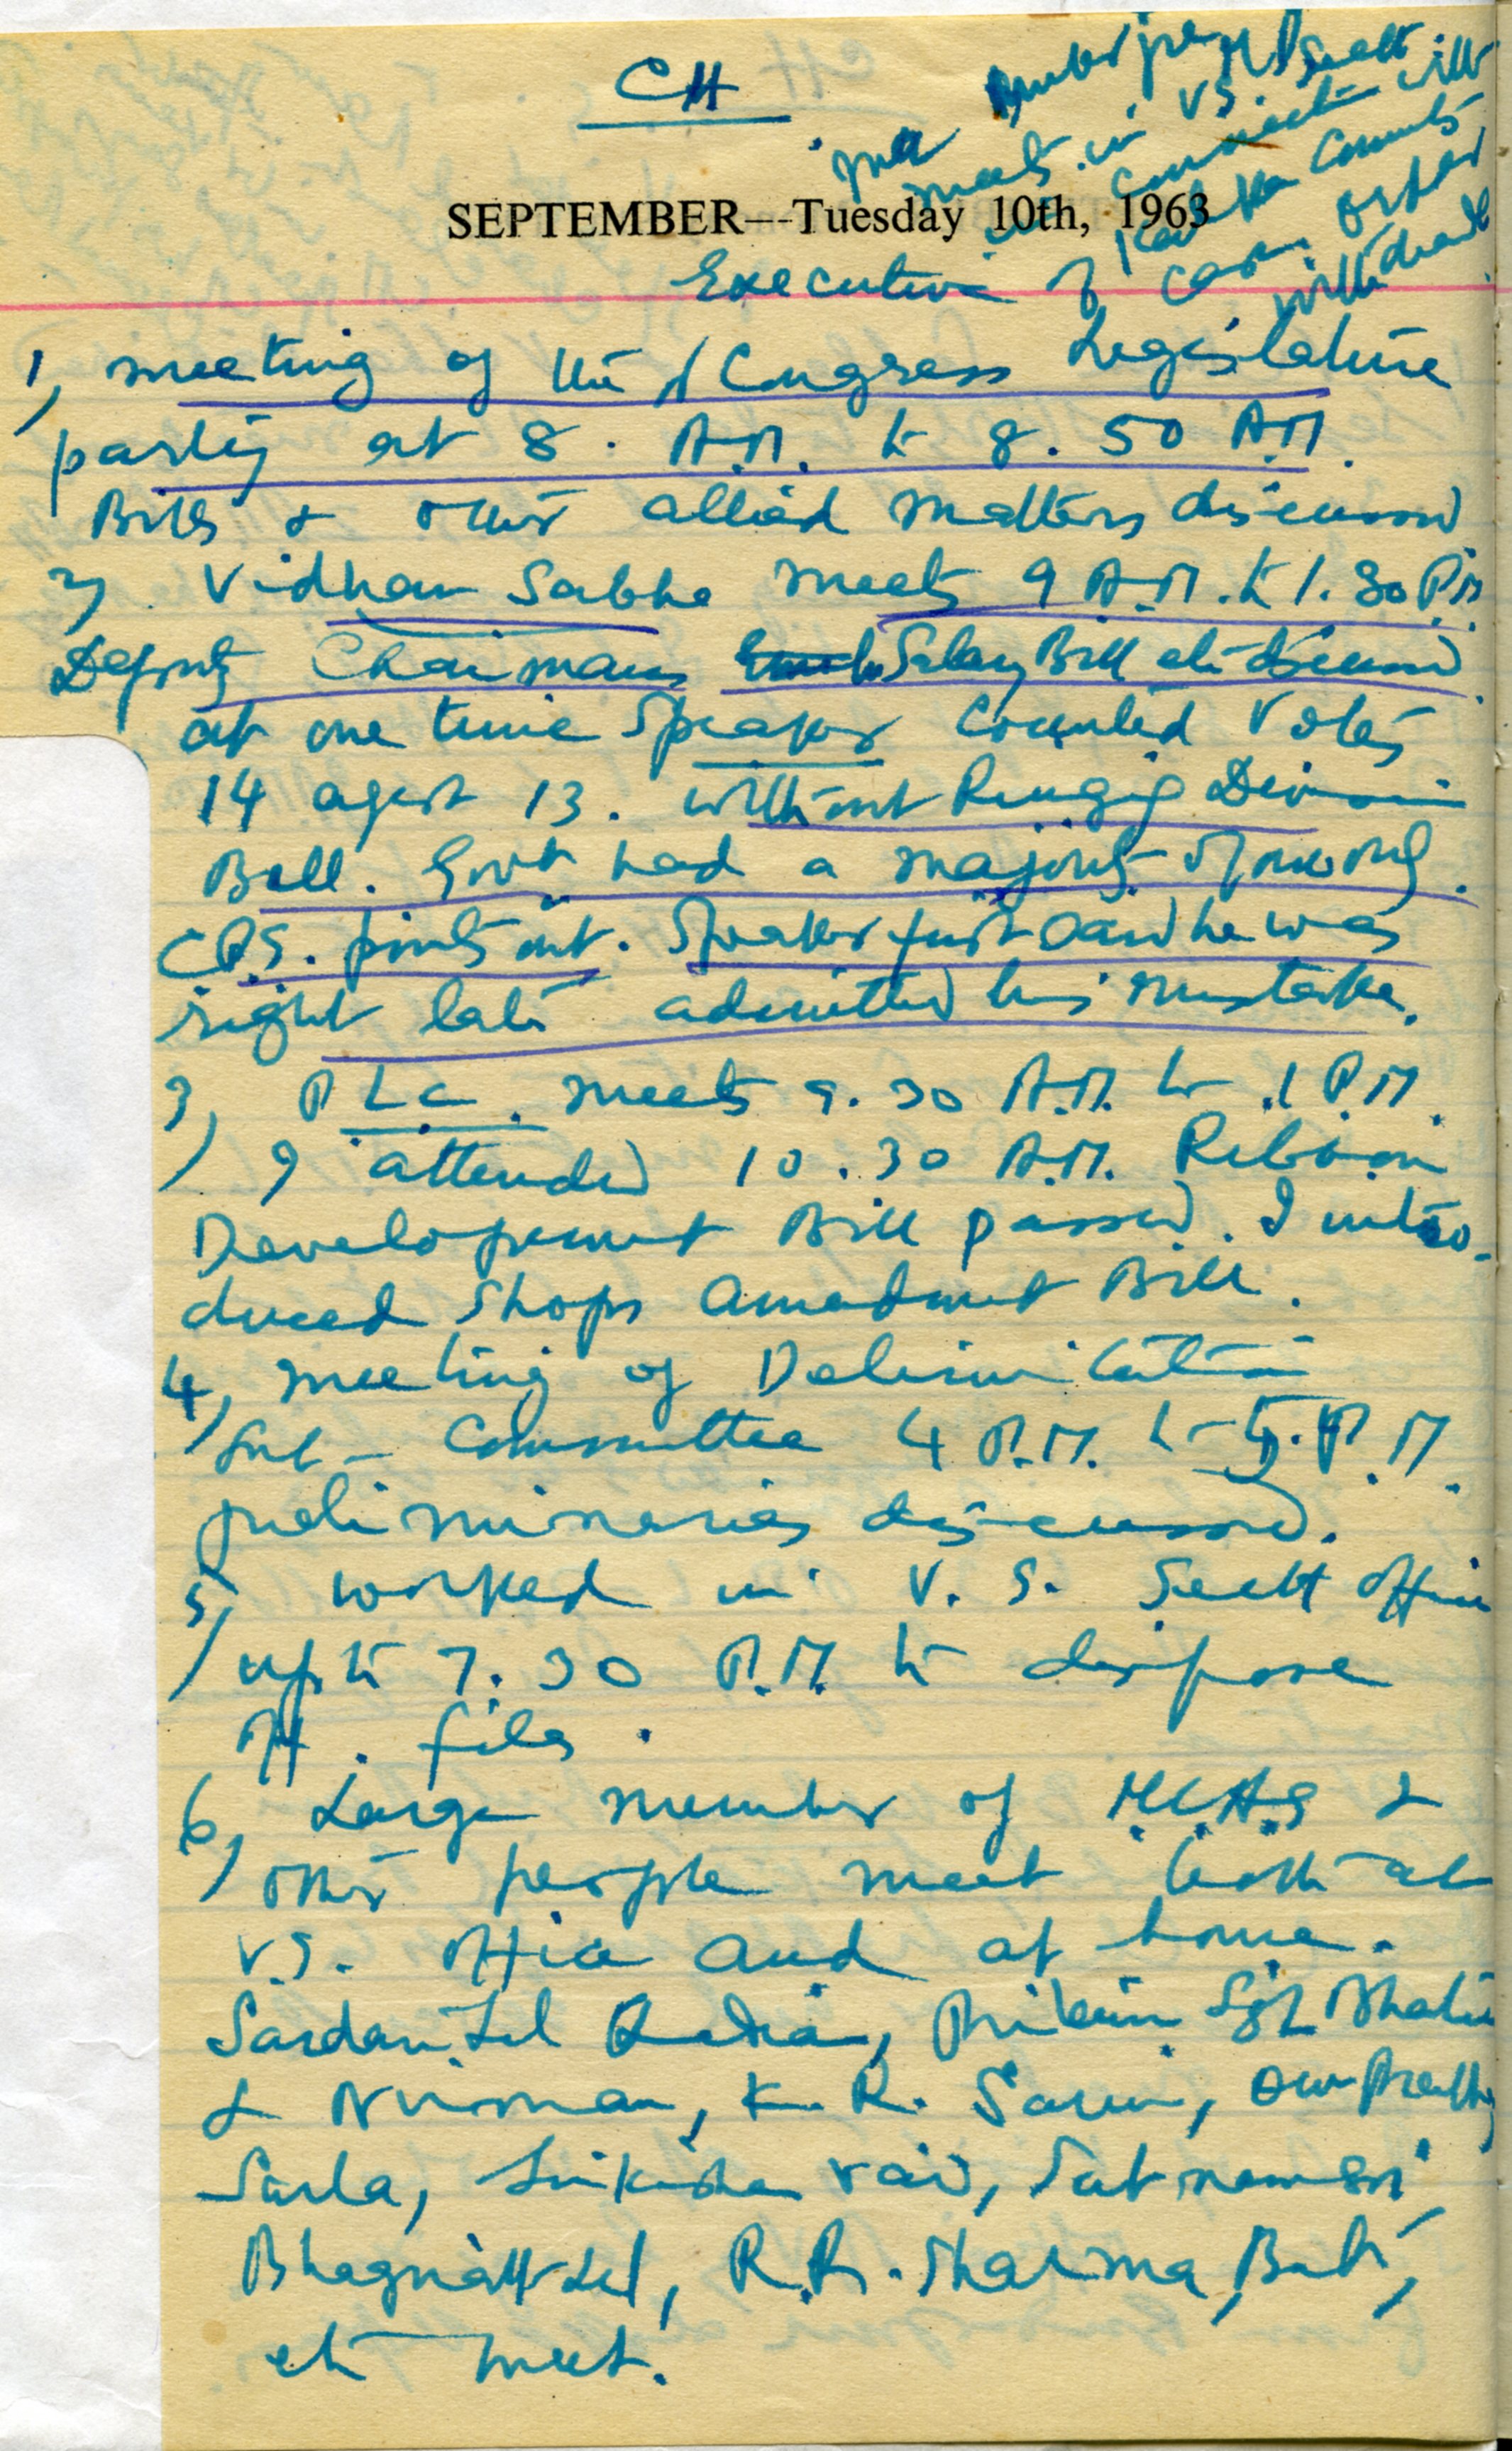 CH
meets in V.S. Sectt
in connection with
SEPTEMBER---Tuesday 10th, 1963
Executive of
1, meeting of the Congress Legislature
party at 8. A.M. to 8.50 A.M.
Bills & other allied matters discussed
2, Vidhan Sabha meets 9 A.M. to 1.30 P.M
Deputy Chairman Salary Bill etc discussed.
at one time Speaker counted votes
14 agst 13. without Ringing Division
Bell. Govt had a majority of one only.
C.P.S. points out. Speaker first said he was
right late admitted his mistake.
3, P.L.C. meets 9.30 A.M. to 1 P.M.
I attended 10.30 A.M. Ribbon
Development Bill passed. I intro-
duced Shops Amendment Bill.
4, meeting of Delimitation
Sub-Committee 4 P.M. to 5 P.M.
preliminaries discussed.
5, worked in V.S. Sectt office
up to 7.30 P.M. to dispose
off. files.
6, Large number of M.L.A.S &
other people meet both at
V.S. office and at home.
Sardari Lal, Pritam Sgh Bhatia
&, K.R. Sarin,
Sarla,
Bhagnath Lal, R.R. Sharma,
etc meet.